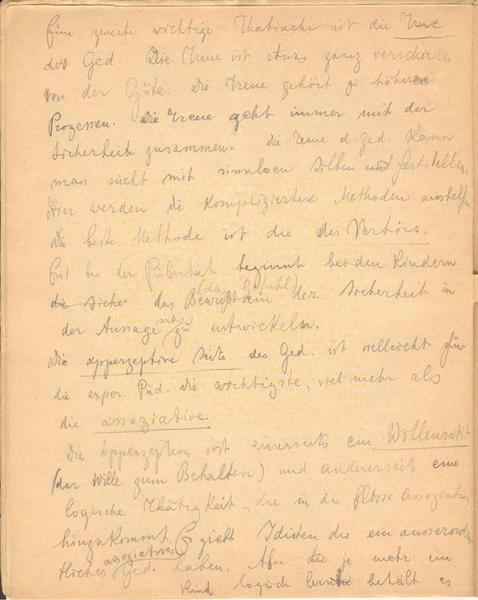 Eine zweite wichtige Thatsache ist die Treue
des Ged. Die Treue ist etwas ganz verschiede
von der Güte. Die Treue gehört zu höheren
Prozessen. Die Treue geht immer mit der
Sicherheit zusammen. Die Treue d. Ged. kann
man nicht mit sinnlosen Silben feststellen
Hier werden die kompliziertere Methoden aushelfen
Die beste Methode ist die des Verhörs.
Erst bei der Pubertät beginnt bei den Kindern
die Sicher das Bewußtsein (das Gefühl) der Sicherheit in
der Aussage sich zu entwickeln.
Die apperzeptive Seite des Ged. ist vielleicht für
die exper. Päd. die wichtigste, viel mehr als
die assoziative.
Die Apperzeption ist einerseits ein Willensakt
(der Wille zum Behalten) und andererseits eine
logische Thätigkeit, die in die Assoziation
hinzukommt. Es giebt Idioten die ein ausserorden
tliches assoziatives Ged. haben. Aber je mehr ein
Kind logisch behält es